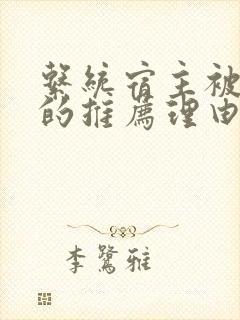 繫統宿主被
的推薦理由
李鷺雅